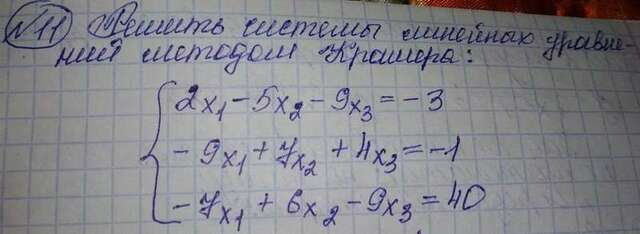 №11 Решить системы линейных уравне-
ний методом Крамера:
2x₁ - 5x₂ - 9x₃ = -3
- 9x₁ + 7x₂ + 4x₃ = -1
- 7x₁ + 6x₂ - 9x₃ = 40